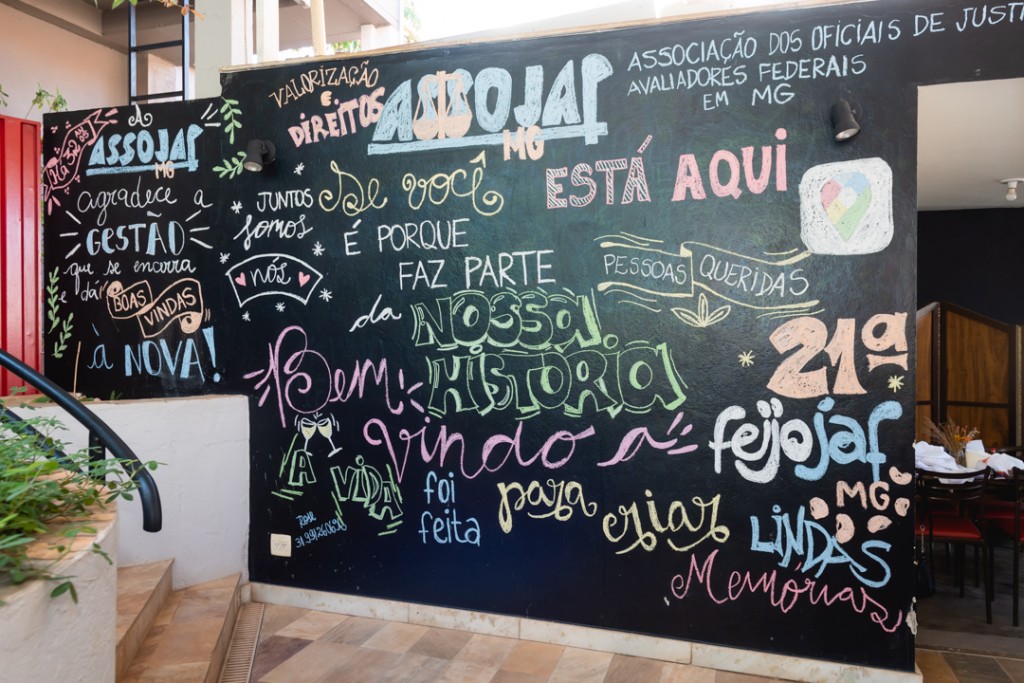 Há 32 anos
A
ASSOJAF
MG
agradece a
GESTÃO
que se encerra
e dá
BOAS
VINDAS
à NOVA!
VALORIZAÇÃO
E
DIREITOS
ASSOJAF
MG
ASSOCIAÇÃO DOS OFICIAIS DE JUSTI
AVALIADORES FEDERAIS
EM MG
JUNTOS
somos
nós
Se você
ESTÁ AQUI
É PORQUE
FAZ PARTE
da NOSSA
HISTÓRIA
PESSOAS QUERIDAS
Bem
Vindo a
21ª
feijojaf
MG
A
VIDA
foi
feita
para criar
LINDAS
Memórias